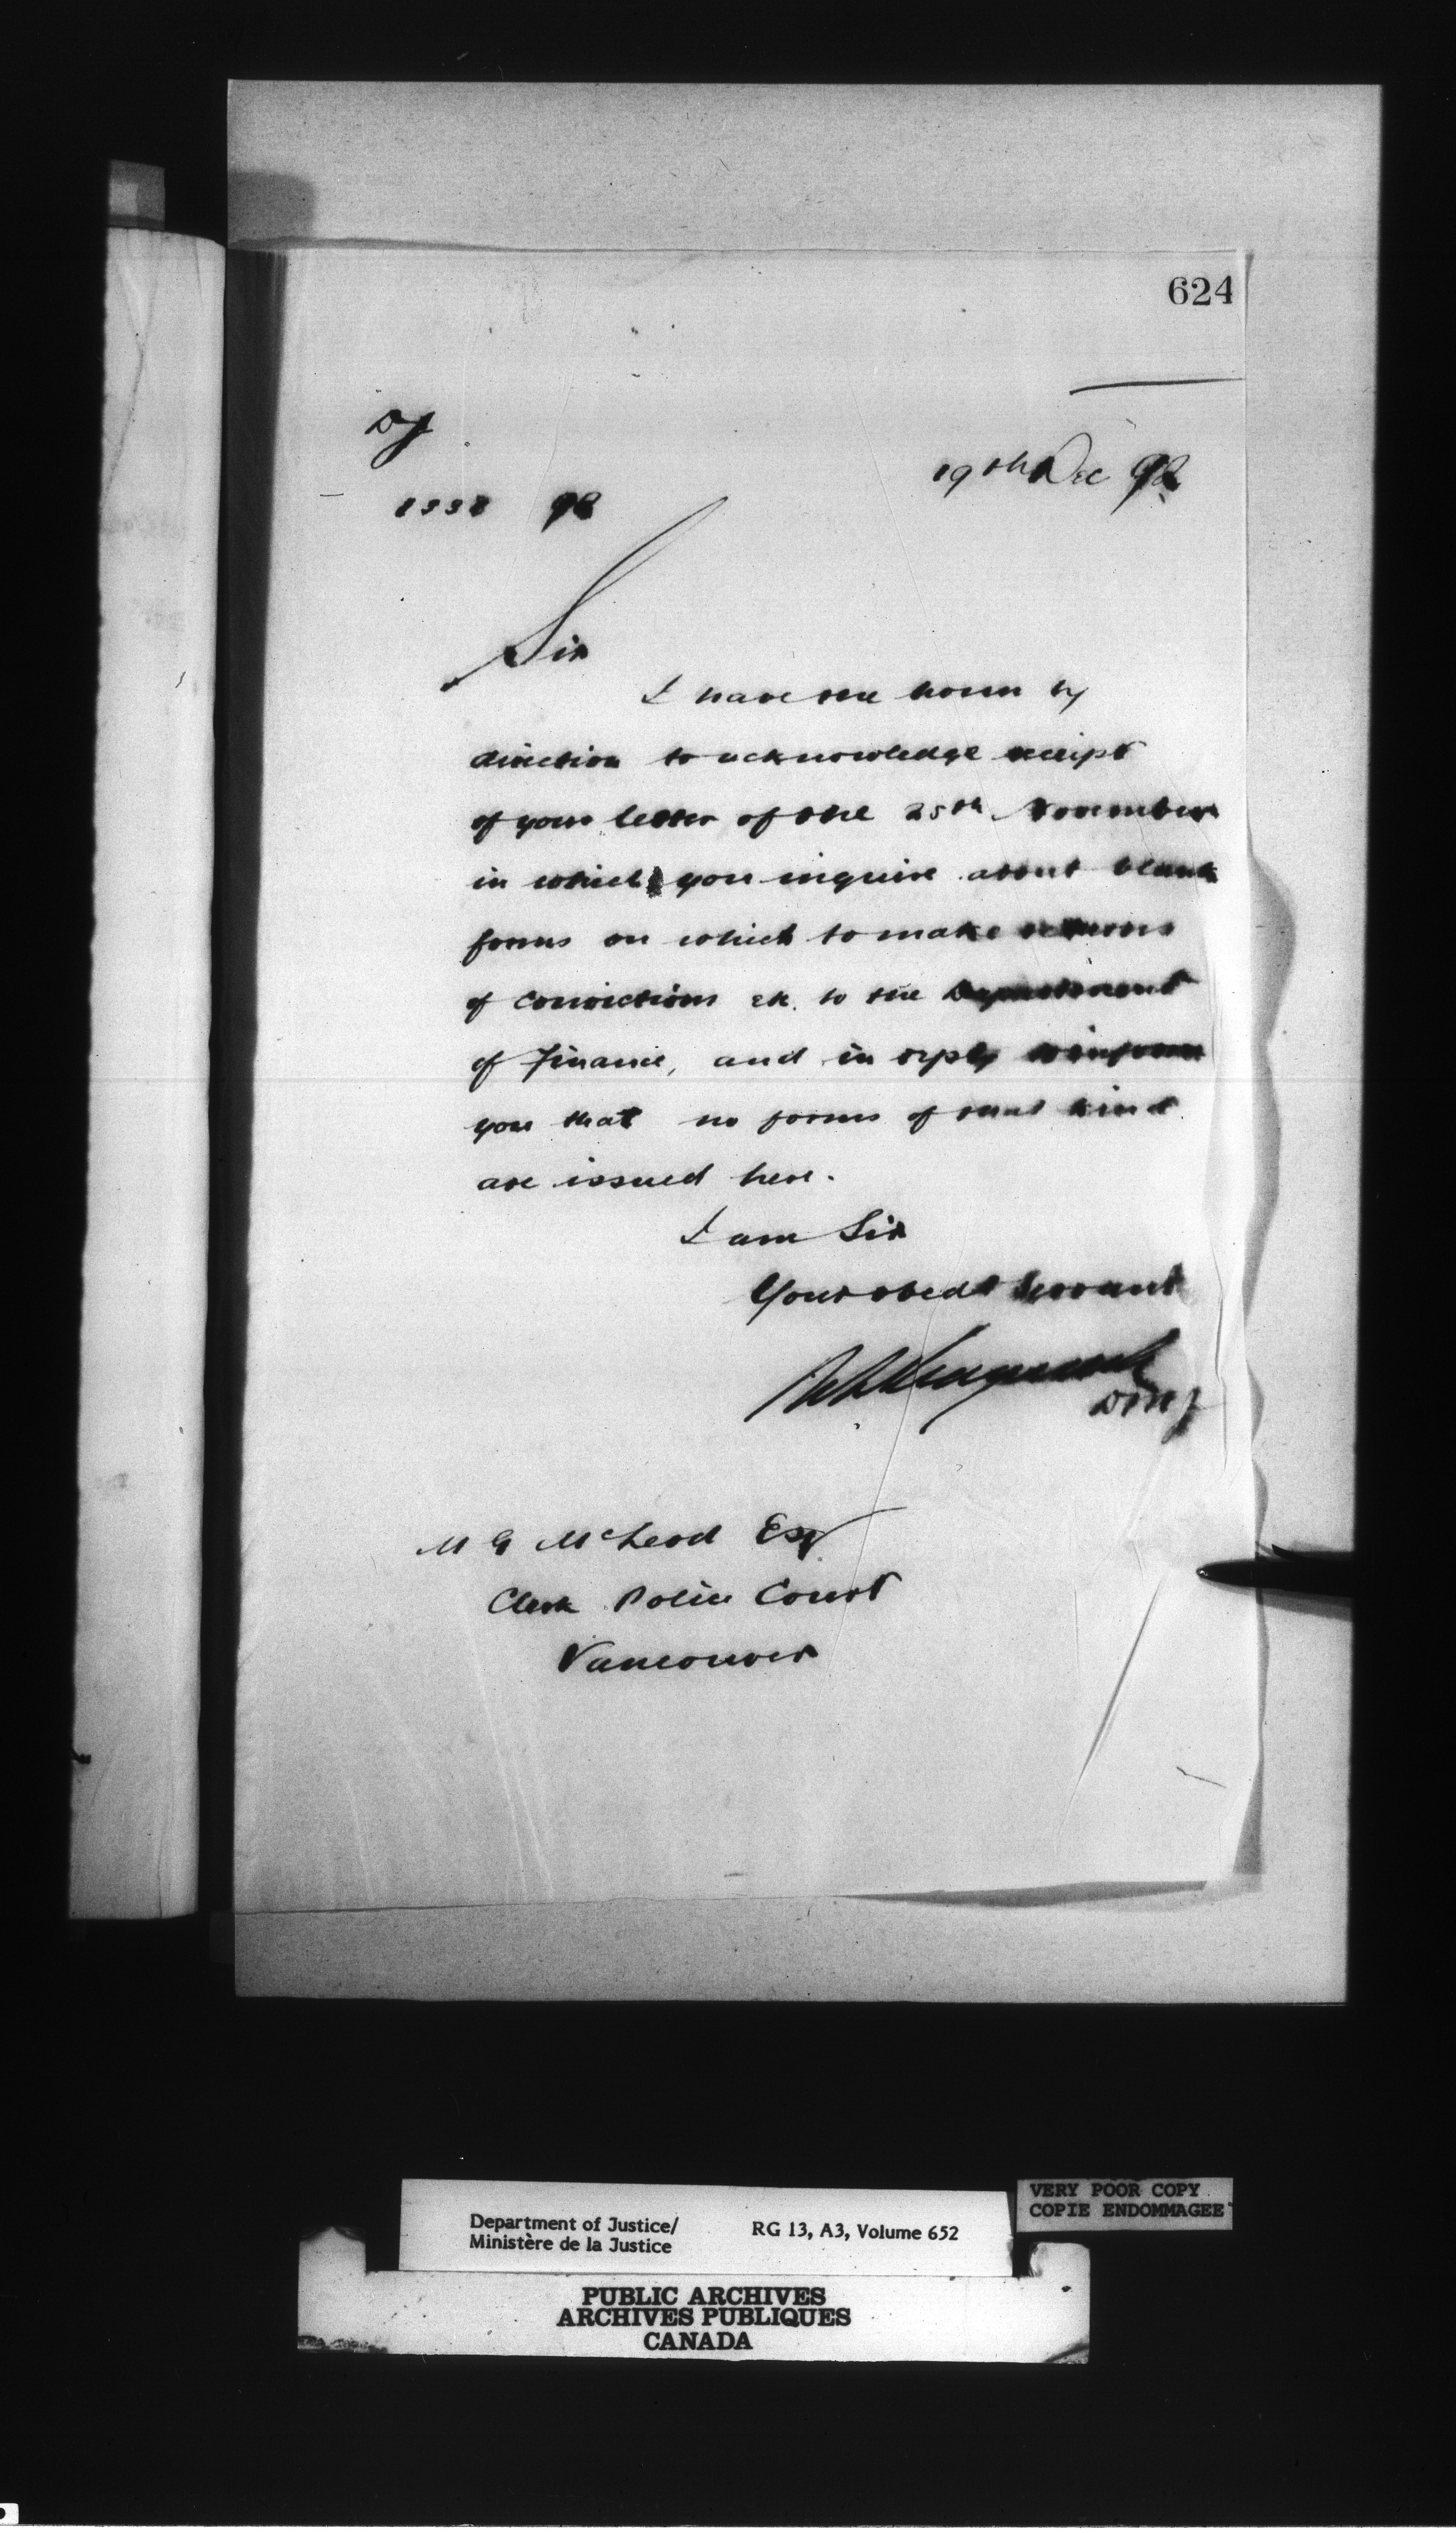 624
DJ
19th Dec 92
1338 92
Sir
I have the honor by
direction to acknowledge receipt
of your letter of the 25th November
in which you inquire about blank
forms on which to make returns
of convictions etc. to the Department
of Finance, and in reply to inform
you that no forms of that kind
are issued here.
I am Sir
Your obedt Servant
DMJ
M G McLeod Esq
Clerk Police Court
Vancouver
VERY POOR COPY
COPIE ENDOMMAGEE
Department of Justice/ RG 13, A3, Volume 652
Ministère de la Justice
PUBLIC ARCHIVES
ARCHIVES PUBLIQUES
CANADA